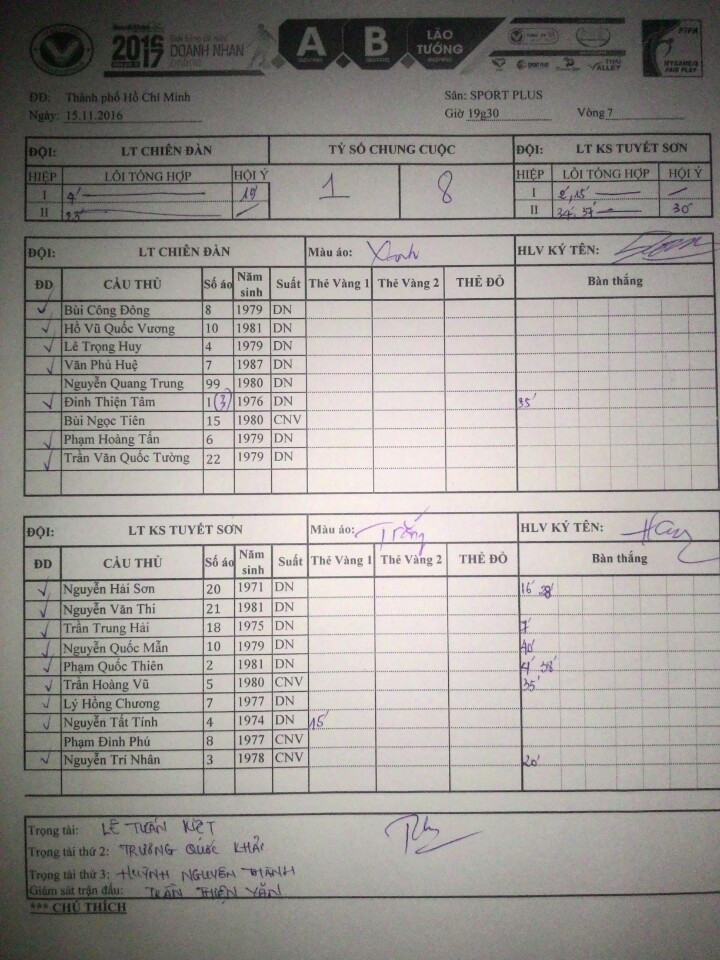 2016
2017
DOANH NHÂN
A
B
LÃO TƯỚNG
THU VALLEY
FIFA
MY GAME IS FAIR PLAY
ĐĐ: Thành phố Hồ Chí Minh Sân: SPORT PLUS
Ngày: 15.11.2016 Giờ 19g30 Vòng 7
ĐỘI: LT CHIÊN ĐÀN TỶ SỐ CHUNG CUỘC ĐỘI: LT KS TUYẾT SƠN
HIỆP LỖI TỔNG HỢP HỘI Ý 1 8 HIỆP LỖI TỔNG HỢP HỘI Ý
I 4' 19' I 2', 15'
II 23' II 34', 37' 30'
ĐỘI: LT CHIÊN ĐÀN Màu áo: Xanh HLV KÝ TÊN:
ĐD CẦU THỦ Số áo Năm sinh Suất Thẻ Vàng 1 Thẻ Vàng 2 THẺ ĐỎ Bàn thắng
Bùi Công Đông 8 1979 DN
Hồ Vũ Quốc Vương 10 1981 DN
Lê Trọng Huy 4 1979 DN
Văn Phú Huệ 7 1987 DN
Nguyễn Quang Trung 99 1980 DN
Đinh Thiện Tâm 1 (3) 1976 DN 35'
Bùi Ngọc Tiên 15 1980 CNV
Phạm Hoàng Tấn 6 1979 DN
Trần Văn Quốc Tường 22 1979 DN
ĐỘI: LT KS TUYẾT SƠN Màu áo: Trắng HLV KÝ TÊN:
ĐD CẦU THỦ Số áo Năm sinh Suất Thẻ Vàng 1 Thẻ Vàng 2 THẺ ĐỎ Bàn thắng
Nguyễn Hải Sơn 20 1971 DN 16' 28'
Nguyễn Văn Thi 21 1981 DN
Trần Trung Hải 18 1975 DN 7'
Nguyễn Quốc Mẫn 10 1979 DN 40'
Phạm Quốc Thiên 2 1981 DN 4' 38'
Trần Hoàng Vũ 5 1980 CNV 35'
Lý Hồng Chương 7 1977 DN
Nguyễn Tất Tính 4 1974 DN 15'
Phạm Đình Phú 8 1977 CNV
Nguyễn Trí Nhân 3 1978 CNV 20'
Trọng tài: LÊ TUẤN KIỆT
Trọng tài thứ 2: TRƯƠNG QUỐC KHẢI
Trọng tài thứ 3: HUỲNH NGUYÊN THÀNH
Giám sát trận đấu: TRẦN THIỆN VĂN
*** CHÚ THÍCH